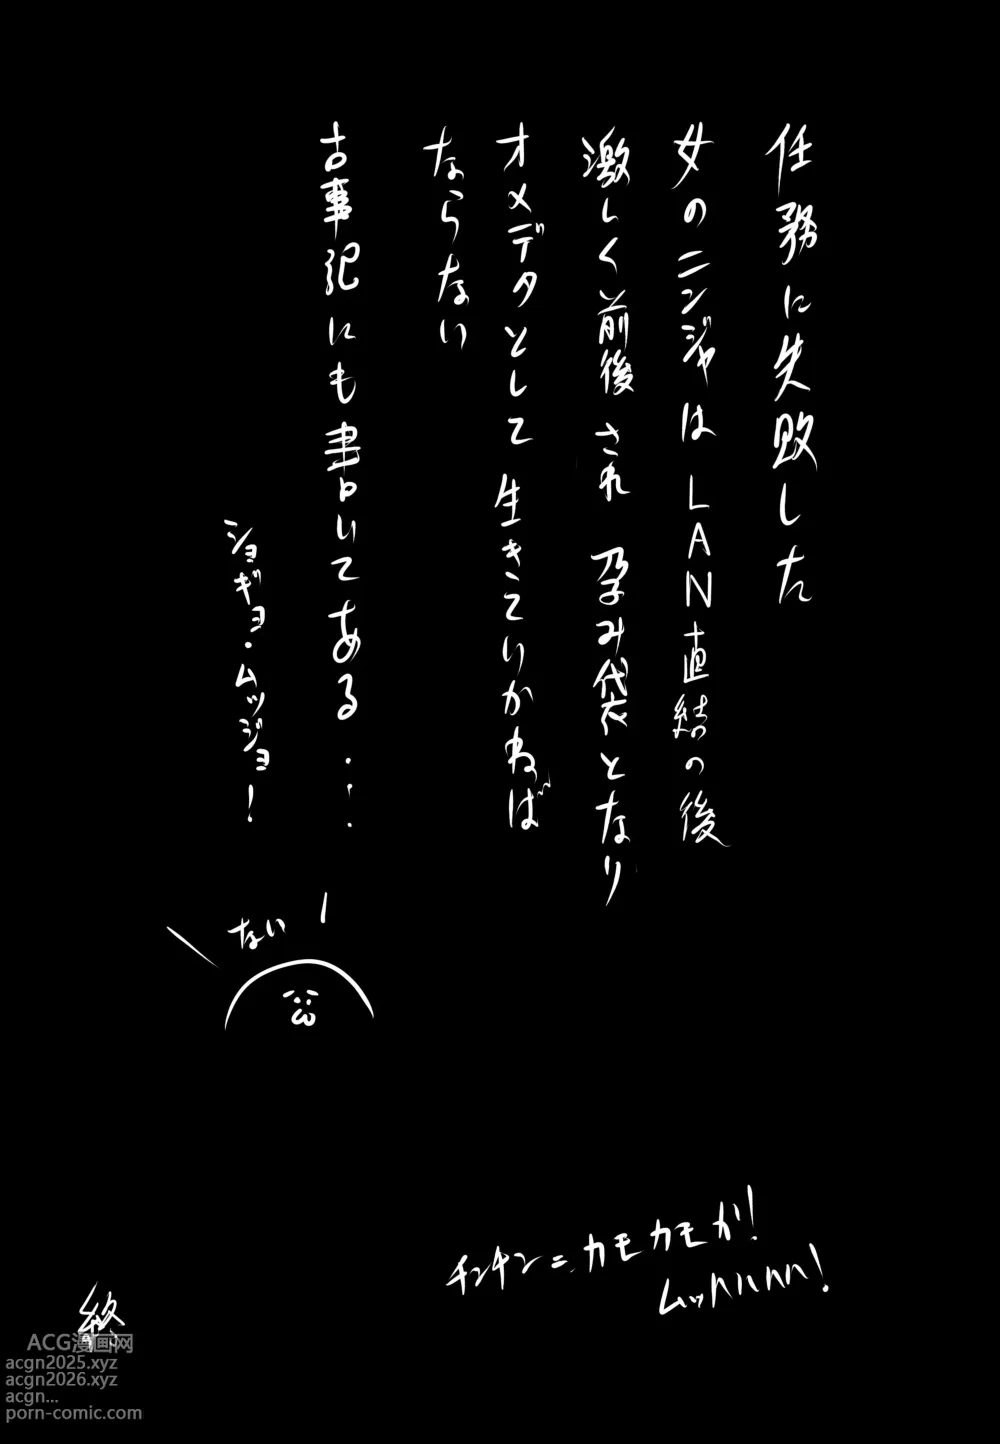 任務に失敗した
女のニンジャはLAN直結の後
激しく前後され 孕み袋となり
オメデタとして生きていかねば
ならない
古事記にも書いてある・・・
ショギョ・ムッジョ！
ない
カモカモか！
ムッハハハハ！
終
ACG漫画网
acgn2025.xyz
acgn2026.xyz
acgn...
porn-comic.com